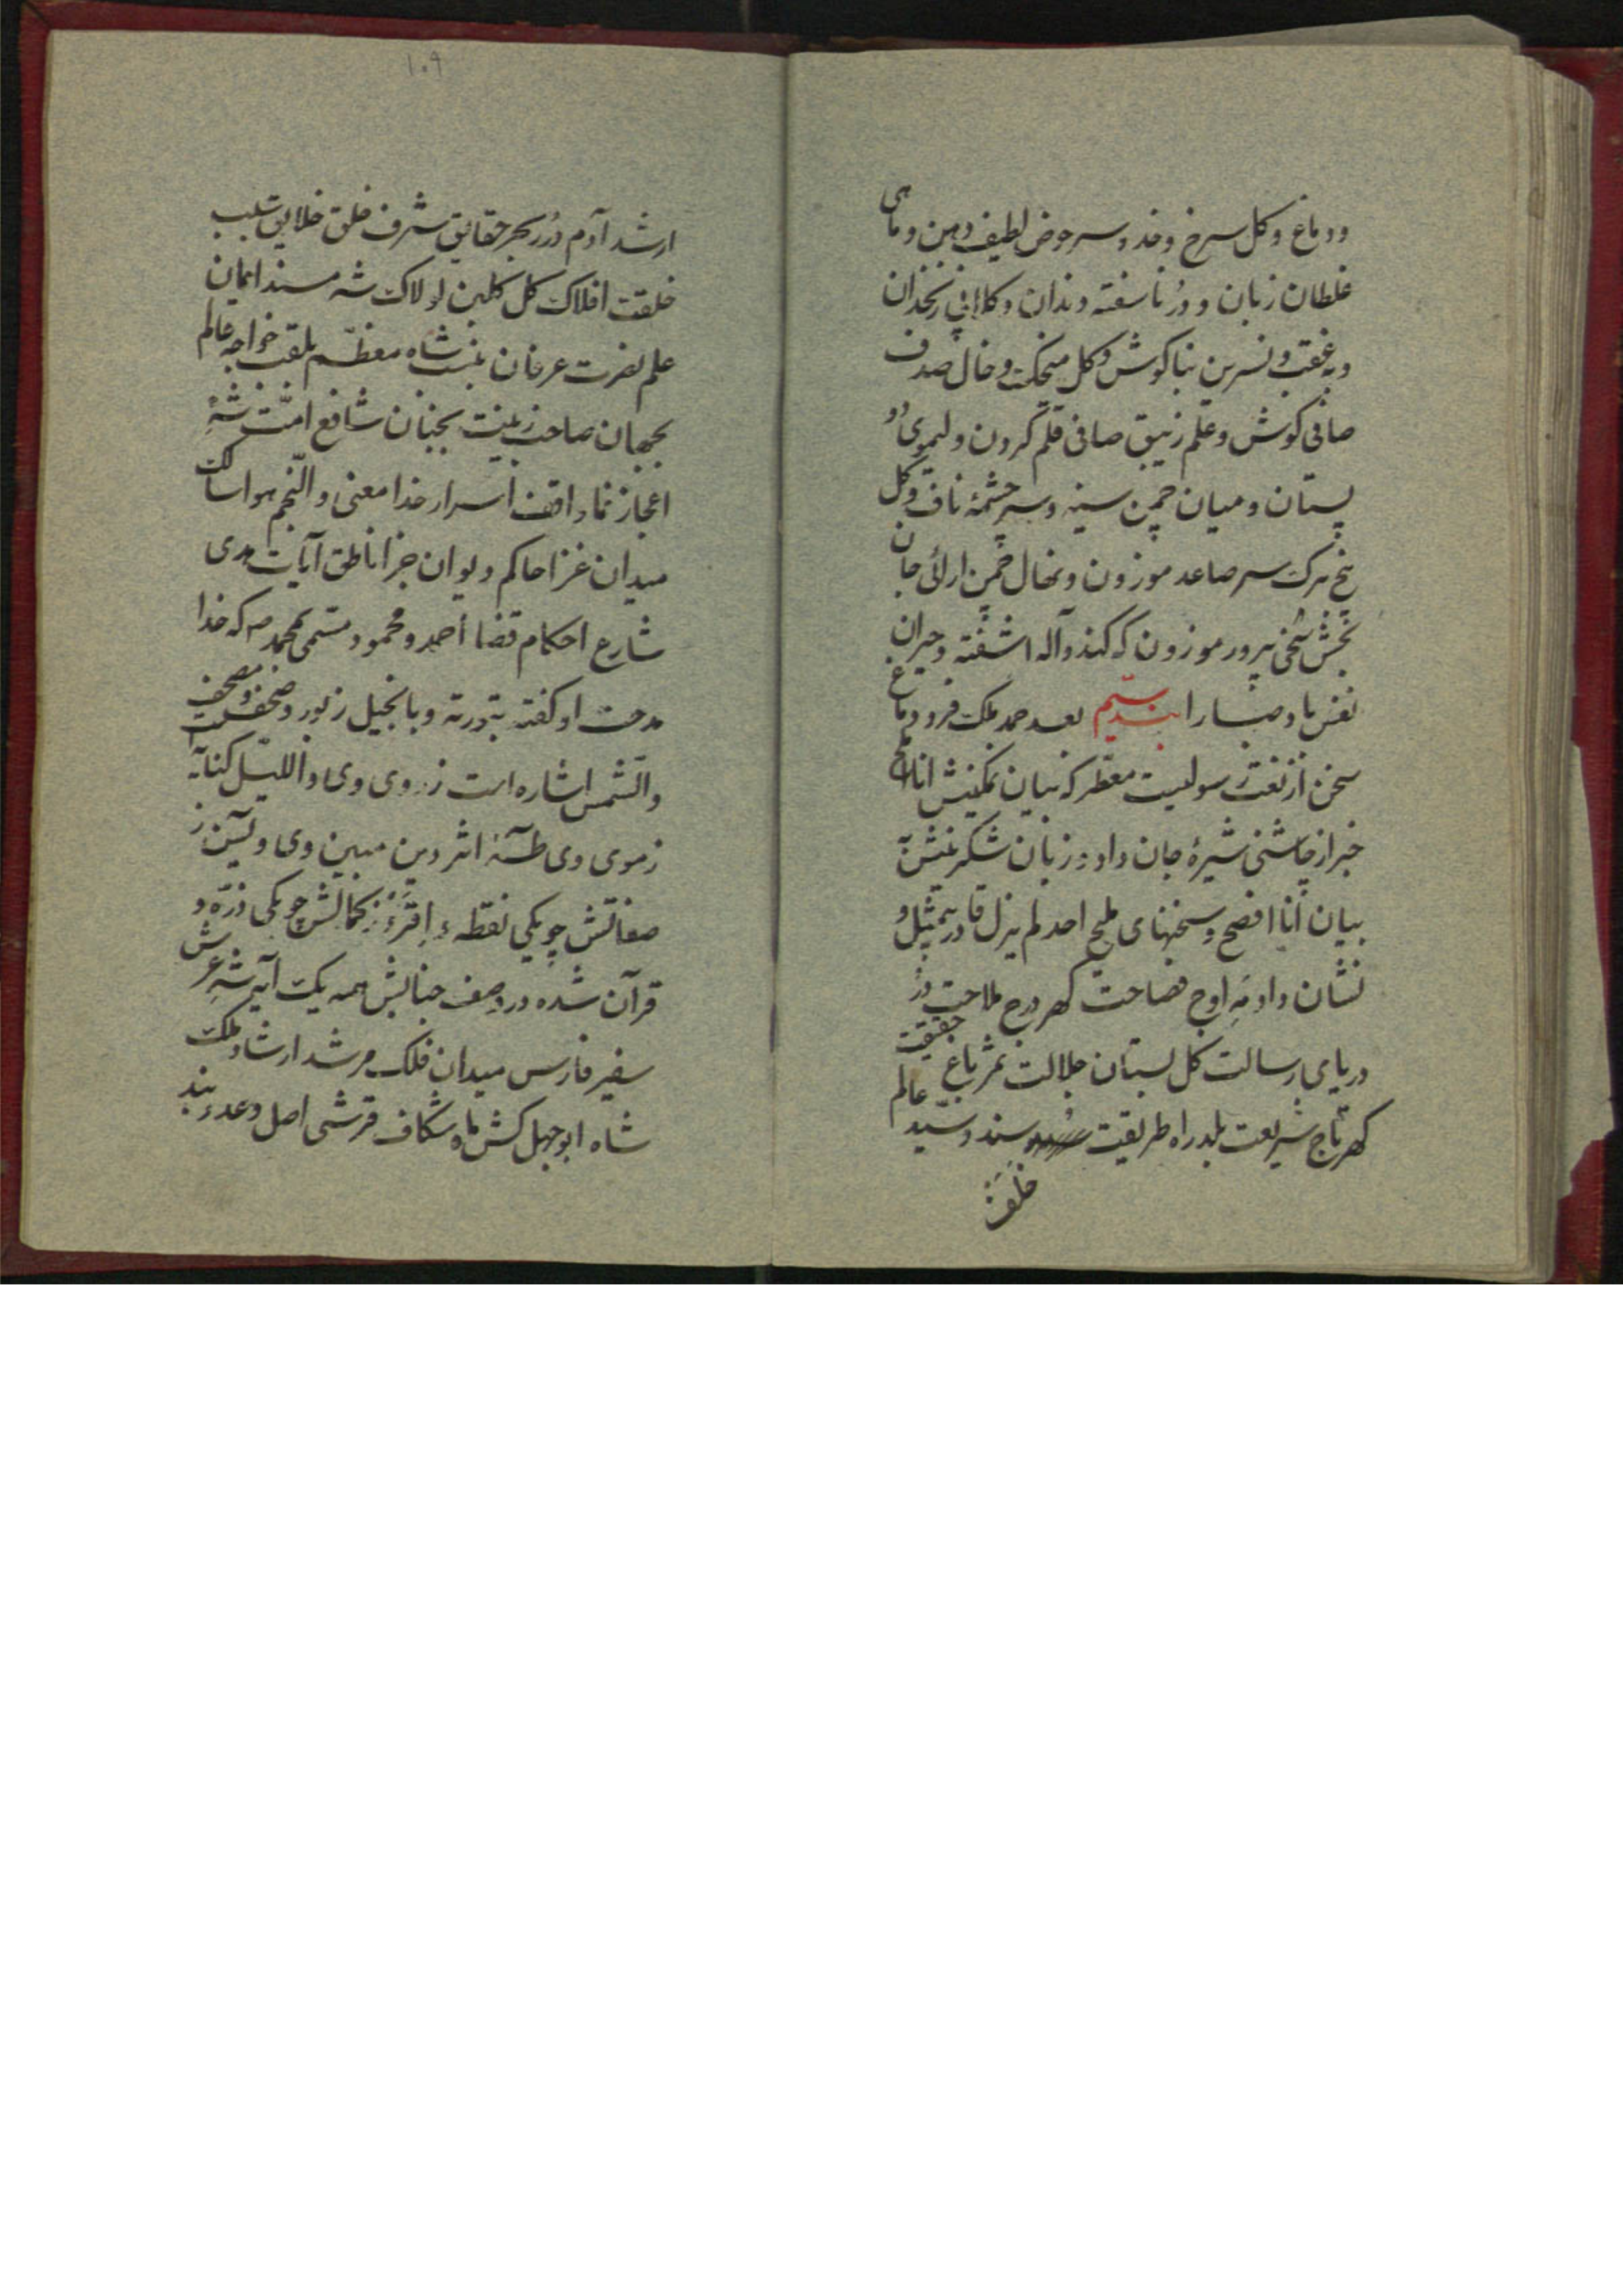 و دماغ و کل سرخ و خد و سر حوض لطیف دهن و ماهی
غلطان زبان و دُر ناسفته دندان و کلابی زنخدان
و غبغب و نسرین بناکوش و کل میخک و خال صدف
صافی کوش و علم زنبق صافی قلم کردن و لیموی دو
پستان و میان چمن سینه و سر چشمهٔ ناف و کل
پنج برک سر صاعد موزون و نهال چمن ارائی جان
بخش سخن پرور موزون که کند واله اشفته و حیران
نفس باد صبا را بند سیم بعد حمد ملک فرد دماغ
سخن از نعت رسولیست معطر که بیان نمکینش انا املح
خبر از چاشنی شیرهٔ جان داد و زبان شکرینش به
بیان انا افصح و سخنهای ملیح احد لم یزل قادر بیمثل و
نشان داد مه اوج فصاحت کهر درج ملاحت دُر
دریای رسالت کل بستان جلالت ثمر باغ حقیقت
کهر تاج شریعت بلد راه طریقت سند و سید عالم
خلف
۱۰۹
ارشد آدم دُرر بحر حقایق شرف خلق خلایق سبب
خلقت افلاک کل کلبن لولاک شه مسند ایمان
علم نصرت عرفان بنسب شاه معظّم بلقب خواجه عالم
بجهان صاحب زینت بجنان شافع امّت شه
اعجاز نما واقف اسرار خدا معنی والنّجم هوا سالک
میدان غزا حاکم دیوان جزا ناطق آیات هدی
شارع احکام قضا احمد و محمود مسمی بمحمد ص که خدا
مدحت او کفته بتورته و بانجیل زبور و صحف و مصحف
والشّمس اشاره است ز روی وی و واللیّل کنایه
ز موی وی طه اثر دین مبین وی و یسین ز
صفاتش چو یکی نقطه و اقرء ز کمالش چو یکی ذرّه و
قرآن شده در وصف جنابش همه یک آیه شه عرش
سفیر فارس میدان فلک مرشد ارشاد ملک
شاه ابوجهل کش ماه شکاف قرشی اصل و عدو بند